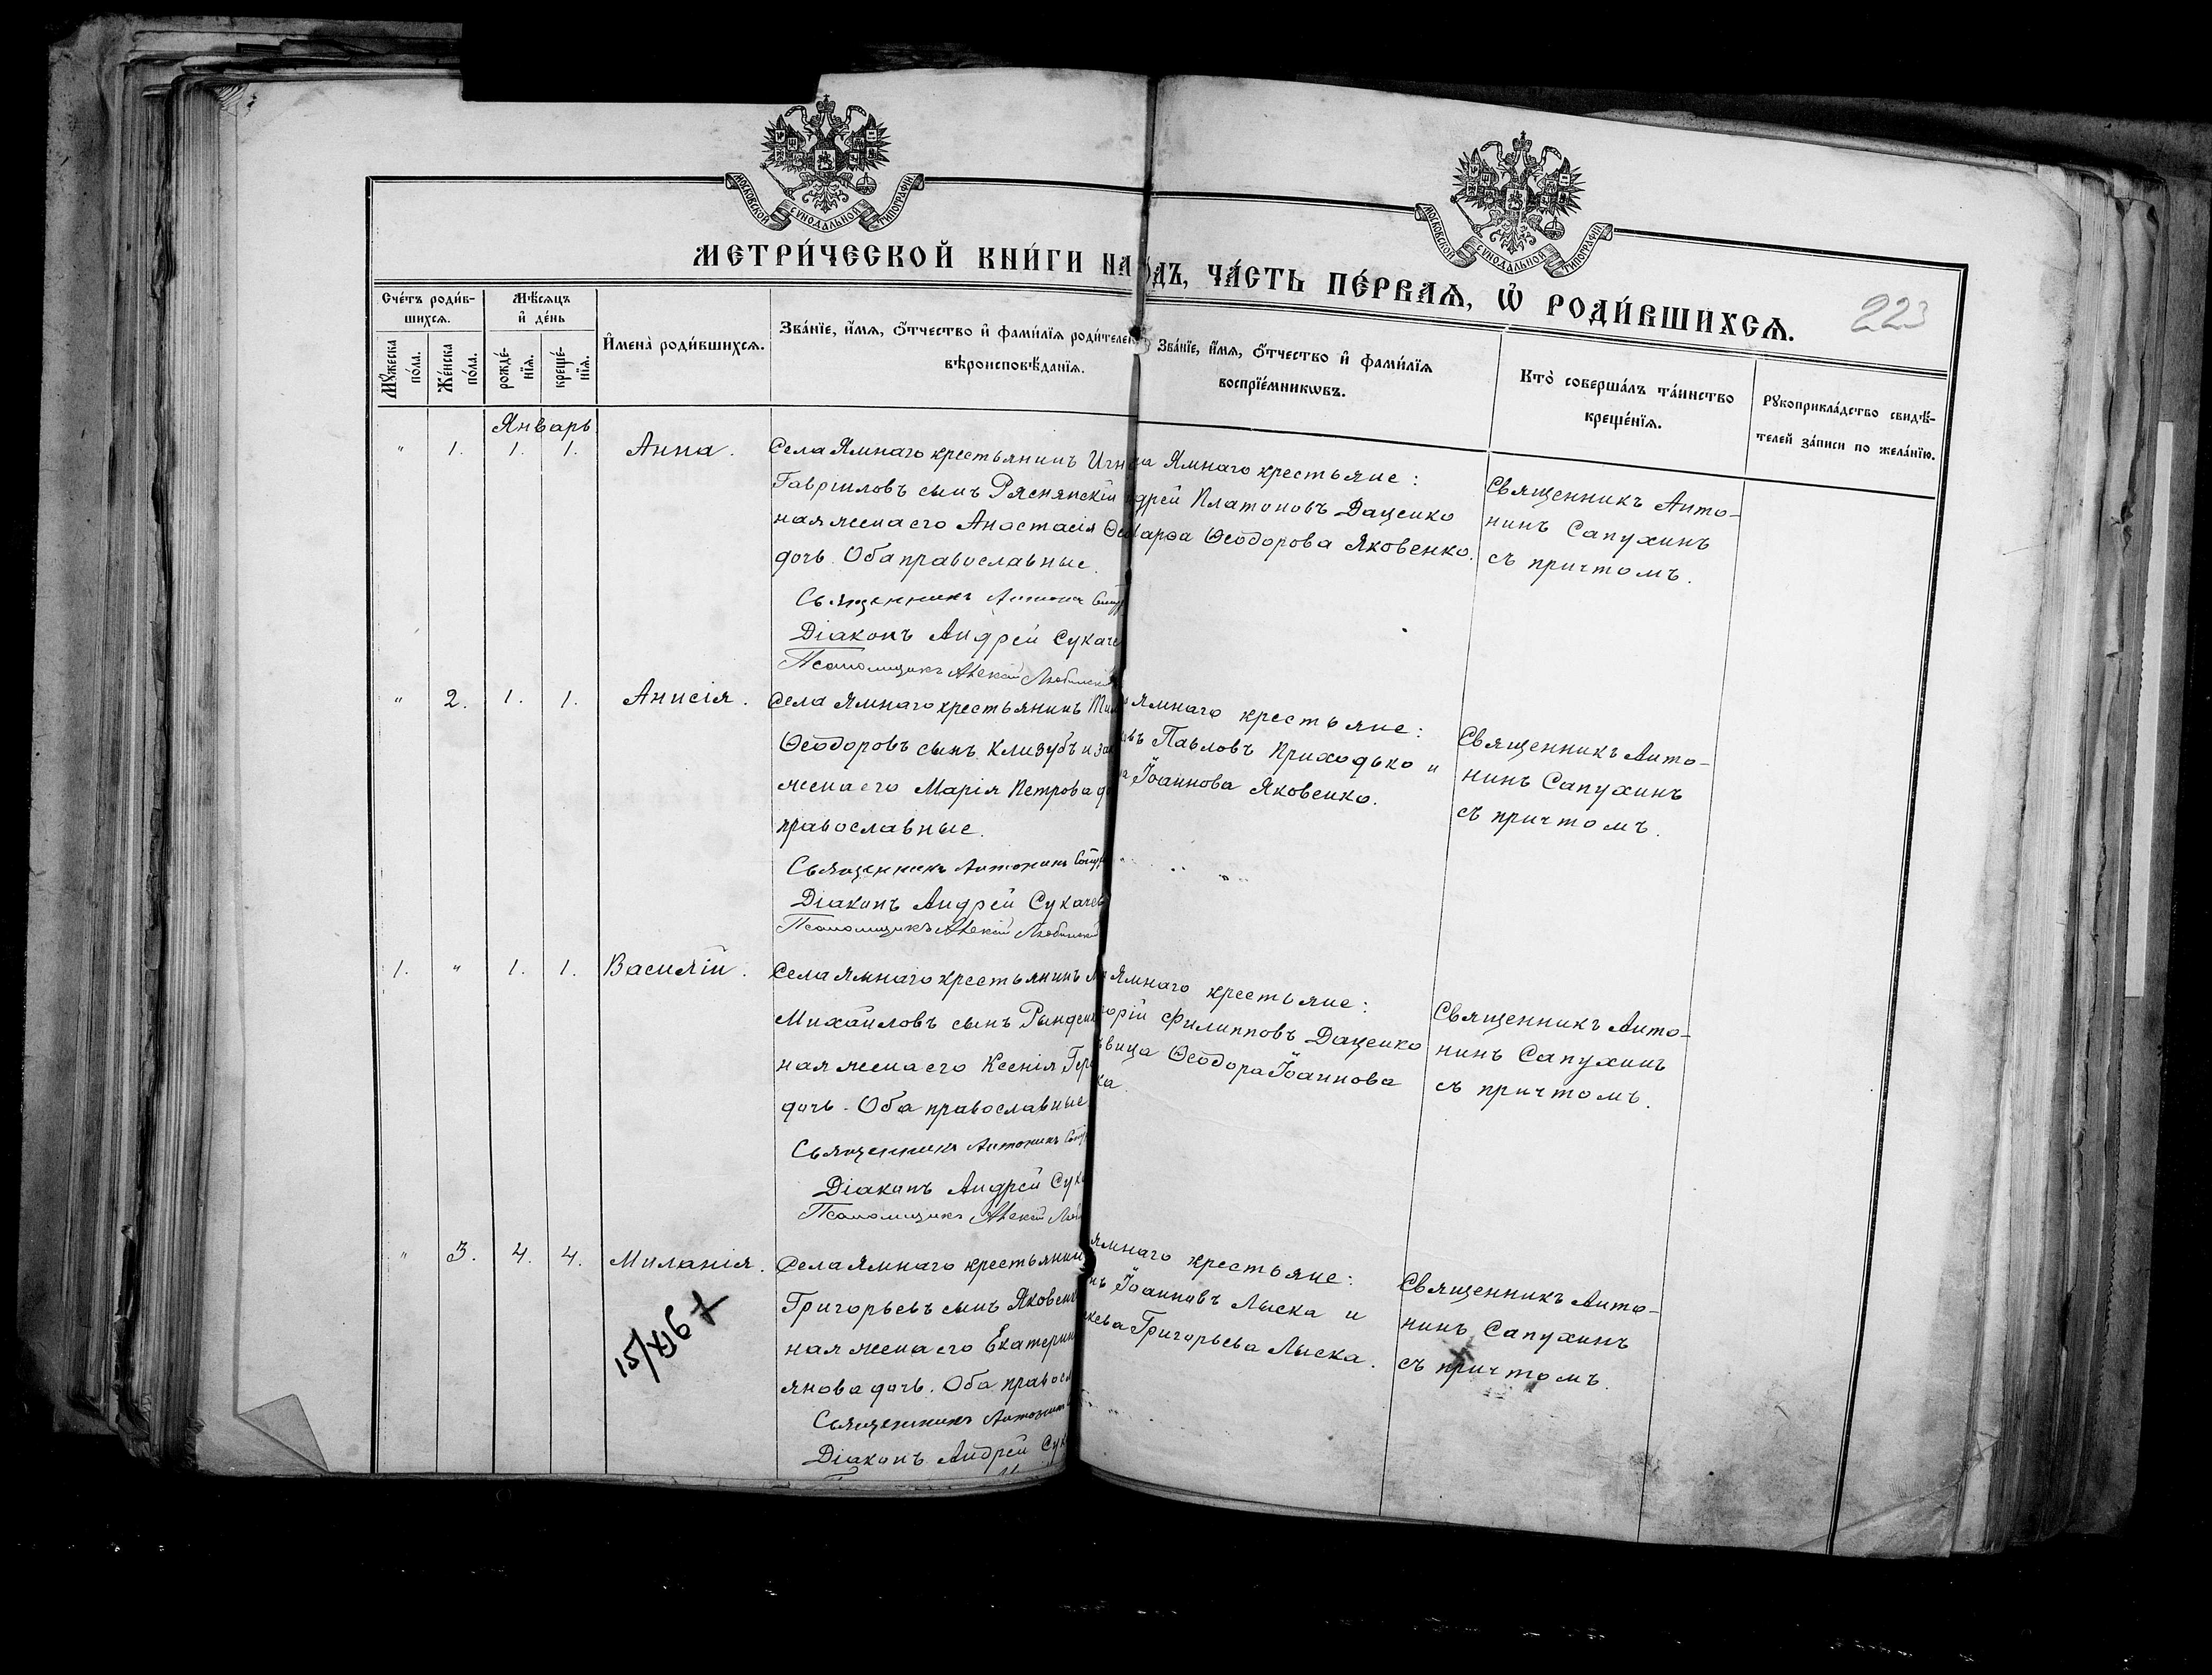 МОСКОВСКОЙ СУНОДАЛЬНОЙ ТИПОГРАФІИ
МОСКОВСКОЙ СУНОДАЛЬНОЙ ТИПОГРАФІИ
МЕТРИ́ЧЕСКОЙ КНИ́ГИ НА ОДЪ, ЧА́СТЬ ПЕ́РВАЯ, Ѡ РОДИ́ВШИХСЯ.
223
Сче́тъ роди́в-
шихсѧ.
Мꙋ́жеска
по́ла.
Же́нска
по́ла.
Мѣ́сѧцъ
и҆ де́нь
рожде́-
нїѧ.
креще́-
нїѧ.
И҆мена̀ роди́вшихсѧ.
Зва́нїе, и҆́мѧ, ѻ҆́тчество и҆ фами́лїѧ роди́телей
вѣроисповѣ́данїѧ.
Зва́нїе, и҆́мѧ, ѻ҆́тчество и҆ фами́лїѧ
воспрїе́мникѡвъ.
Кто̀ соверша́лъ та́инство
креще́нїѧ.
Рꙋкоприкла́дство свидѣ́-
телей за́писи по жела́нїю.
Январь
" 1. 1. 1. Анна.
Села Ямнаго крестьянинъ Игн
Гавриловъ сынъ Ряснянскій
ная жена его Анастасія Ѳео
дочь. Оба православные.
Священникъ Антонинъ
Діаконъ Андрей Сукаче
Псаломщикъ Алексій
Ямнаго крестьяне:
дрей Платоновъ Даценко
Марѳа Ѳеодорова Яковенко.
Священникъ Анто-
нинъ Сапухинъ
съ причтомъ.
" 2. 1. 1. Анисія.
Села Ямнаго крестьянинъ
Ѳеодоровъ сынъ Клизубъ и зак
жена его Марія Петрова до
православные.
Священникъ Антонинъ
Діаконъ Андрей Сукачев
Псаломщикъ Алексій
Ямнаго крестьяне:
овъ Павловъ Приходько и
Іоаннова Яковенко.
Священникъ Анто-
нинъ Сапухинъ
съ причтомъ.
1. " 1. 1. Василій.
Села Ямнаго крестьянинъ
Михайловъ сынъ Рынденк
ная жена его Ксенія Гер
дочь. Оба православные
Священникъ Антонинъ
Діаконъ Андрей Сук
Псаломщикъ Алексій
Ямнаго крестьяне:
горій Филипповъ Даценко
вица Ѳеодора Іоаннова
ка.
Священникъ Анто-
нинъ Сапухинъ
съ причтомъ.
" 3. 4. 4. Миланія.
Села Ямнаго крестьянин
Григорьевъ сынъ Яковенк
ная жена его Екатерин
янова дочь. Оба правосл
Священникъ Антонинъ
Діаконъ Андрей Сук
Ямнаго крестьяне:
нъ Іоанновъ Лыска и
Григорьева Лыска.
Священникъ Анто-
нинъ Сапухинъ
съ причтомъ.